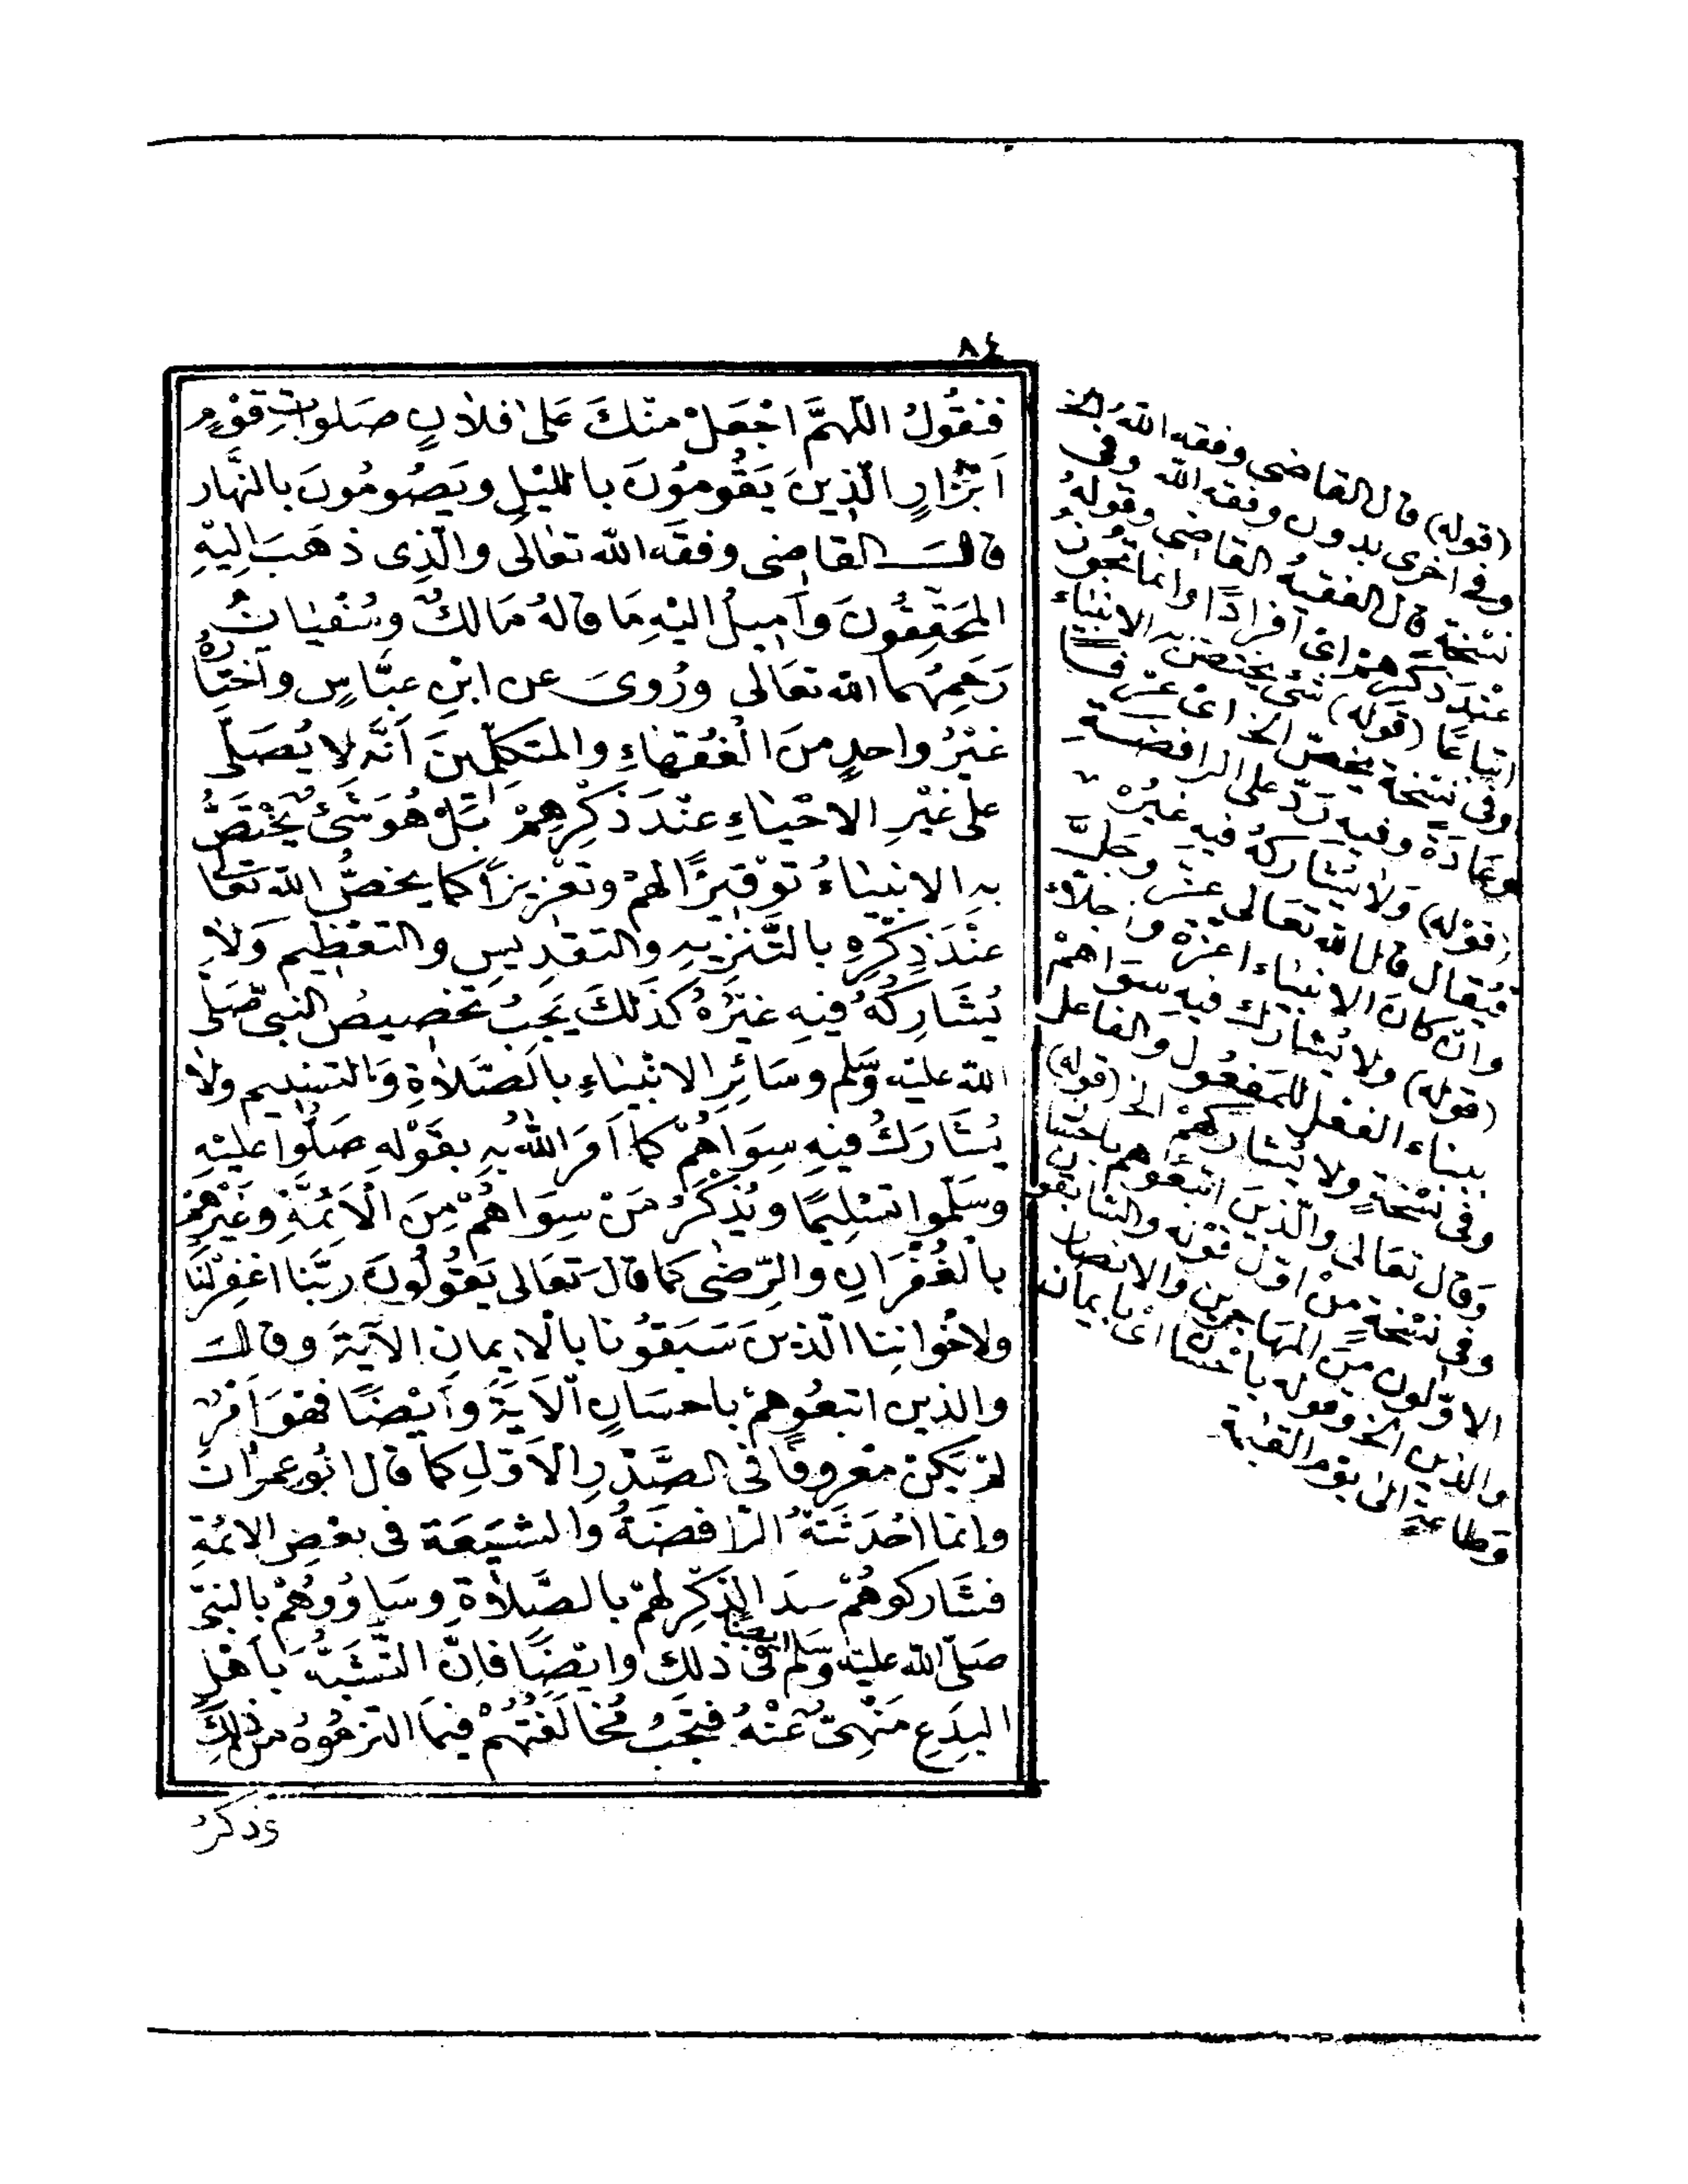 ٨٤
فنقُولُ اللّهمَّ اجْعَلْ منْكَ عَلىٰ فلانٍ صَلَواتِ قوْمٍ
اَبْرَارٍ الّذِينَ يَقُومُونَ بالليْلِ ويَصُومُونَ بالنَّهار
قالَ القاضى وفقَه الله تعَالى والّذِى ذهَبَ اِليْهِ
المحَقِّقُونَ وَاَمِيلُ اليْهِ مَا قالهُ مَالكٌ وسُفْيانُ
رَحِمَهُما الله تعَالى ورُوِىَ عن ابْنِ عبَّاسٍ واخْتَارَهُ
غيْرُ واحدٍ منَ الْفُقهَاءِ والمتَكلّمينَ اَنَّه لا يُصَلّى
على غيْرِ الانبيَاءِ عنْدَ ذكْرِهِمْ بَلْ هُوَ شَىْءٌ يخْتَصُّ
بهِ الانبيَاءُ توْقيرًا لهمْ وتعْزيزًا كما يخصُّ الله تعَالى
عنْدَ ذِكْرِهِ بالتَّنْزيهِ والتقديسِ والتعْظيم وَلَا
يُشَارِكُهُ فيهِ غيْرُهُ كذلكَ يَجبُ تخصيصُ النبى صَلى
الله عليْه وسَلم وسَائِرِ الانبيَاءِ بالصَّلاةِ وَالتسْليم ولَا
يُشَارَكُ فيهِ سِوَاهُمْ كما اَمَرَ اللهُ بهِ بقَوْلهِ صَلُّوا عليْهِ
وسَلّموا تسْليمًا ويُذْكَرُ مَنْ سِوَاهُمْ مِنَ الْاَئمَّةِ وغيْرِهمْ
بالغُفْرَانِ والرّضىٰ كما قالَ تعَالى يَقُولُونَ ربَّنا اغفِرْ لنَا
ولاخْوَاننِا الّذينَ سَبَقُونا بالْايمانِ الآيَةَ وقالَ
والذين اتبَعُوهمْ باحسَانٍ الْآيَةَ وَاَيْضًا فهوَ اَمْرٌ
لمْ يكنْ معْروفًا فى الصَّدْرِ الْاَوّلِ كما قال ابُو عمرَانَ
وانمَا احْدَثَتهُ الرَّافضَةُ والشيعَة فى بعْضِ الائمَّةِ
فشَاركوهُمْ عنْدَ الذّكْرِ لهمْ بالصَّلَاةِ وسَاوُوهُمْ بالنبىّ
صَلّى الله عليْه وسَلم فى ذلكَ وايْضًا فاِنَّ التّشَبُّهَ باَهْلِ
البدَعِ مَنْهِىٌّ عَنْهُ فتجَبُ مُخالفَتُهُمْ فيمَا التزمُوهُ منْ ذلكَ
وذكرُ
(قوله) قال القاضى وفقه اللهُ الخ
وفى اخرى بدون وفقه الله وفى
نسْخَةٍ قال الفقيهُ القاضى وقولهُ
عنْدَ ذكرهمْ اى اَفرادًا وانما تجُوزُ
اتباعًا (قوله) شئ يختصّ به الانبيَاء
وفى نسْخَة يخصّ الخ اى عرفًا
وعَادَةً وفيه رَدّ على الرافضَة
(قوْله) وَلَا يُشَاركهُ فيه غيْرُهْ
فيُقال قال الله تعَالى عزّ وجَلَّ
وانْ كانَ الانبيَاء اعزّةً واجلاءَ
(قوله) ولا يُشارك فيهِ سوَاهمْ
ببنَاء الفعْل للمفعُول والفاعل
وفى نسْخَةٍ ولا يُشاركهمْ الخ (قوله)
وَقال تعَالى والّذينَ اتبعُوهم باحْسَان
وفى نسْخَةٍ منْ اوّل قوْله والسَّابقون
الاوّلون منَ المهَاجرينَ والانصار
والذين الخ وقوله باحْسَان اى بايمان
وطاعةٍ الى يوْم القيٰمة